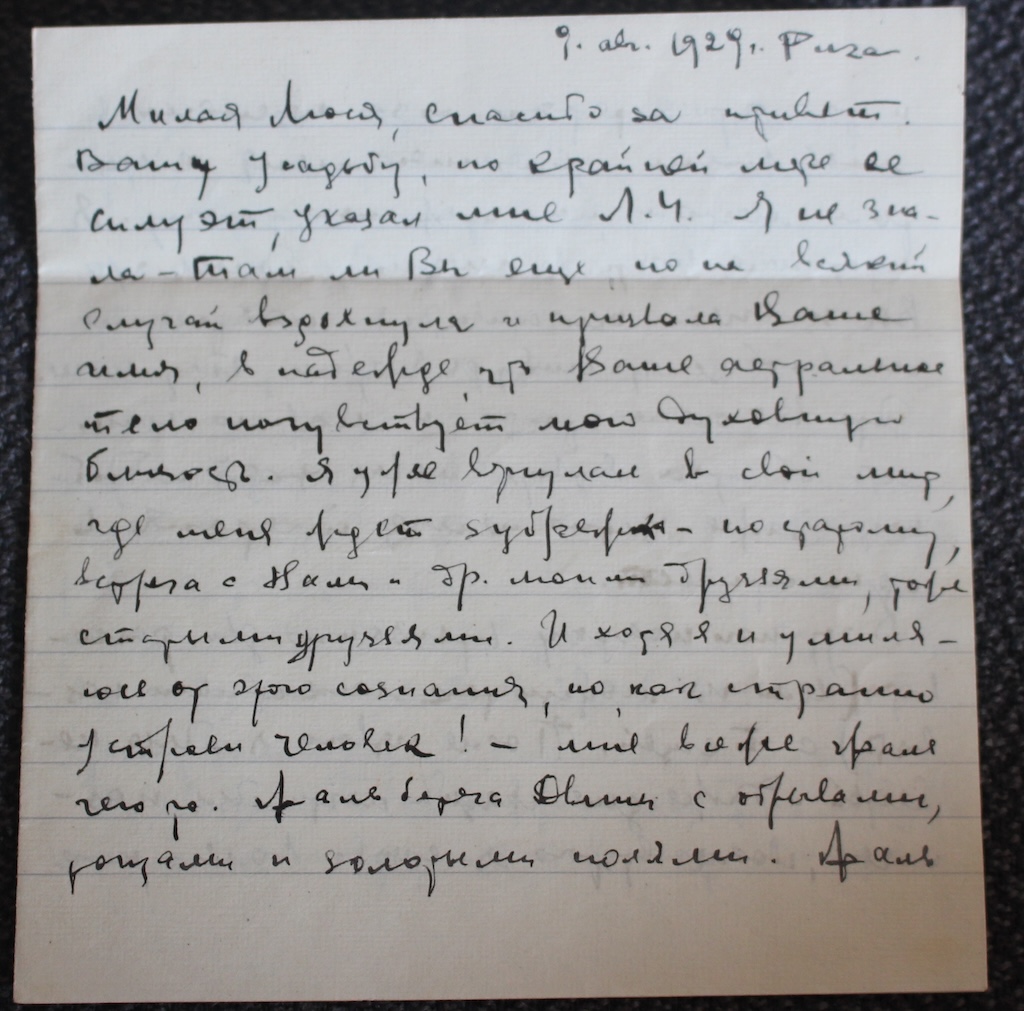 9. авг. 1929 г. Рига.
Милая Люся, спасибо за привет.
Вашу усадьбу, по крайней мере ее
силуэт, указал мне Л.Ч. Я не зна-
ла – там ли Вы еще, но на всякий
случай вздохнула и призвала Ваше
имя, в надежде, что Ваше астральное
тело почувствует мою духовную
близость. Я уже вернулась в свой мир,
где меня ждет – по старому,
встреча с Вами и др. моими друзьями, тоже
старыми друзьями. И хотя я и умиля-
юсь от этого сознания, но, как странно
устроен человек! – мне все же жаль
чего то. Жаль берега Двины с обрывами,
рощами и золотыми полями. Жаль